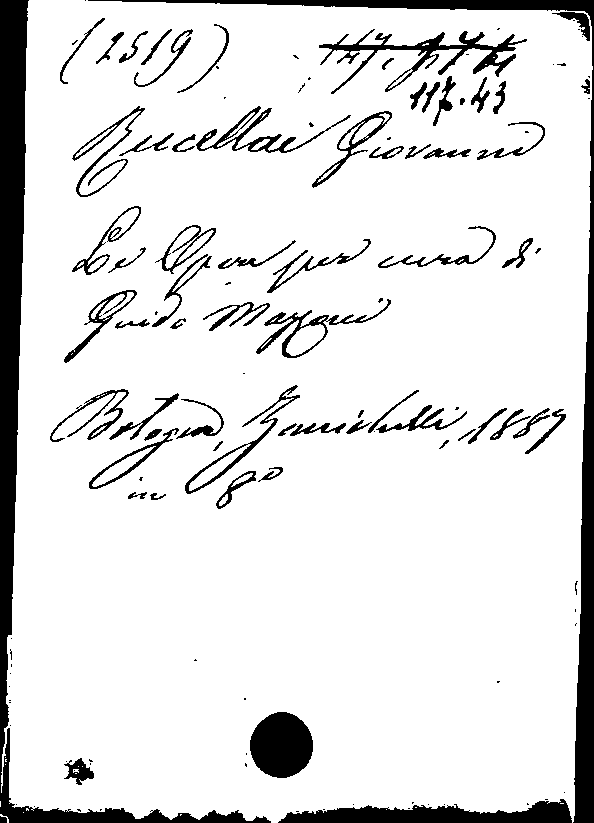 (2519)
117.43
Rucellai Giovanni
Le Opere per cura di
Guido Mazzoni
Bologna, Zanichelli, 1887
in 8º